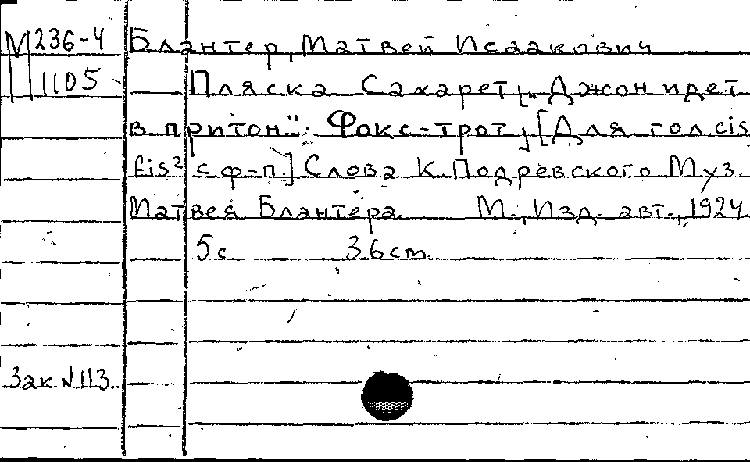 М 236-4 Блантер, Матвей Исаакович
1105 Пляска Сахарет „Джон идет
в притон": Фокс-трот; [Для гол. cis
fis² с ф-п.] Слова К. Подревского Муз.
Матвея Блантера. М., Изд. авт., 1924
5 с 36 cm.
Зак № 113